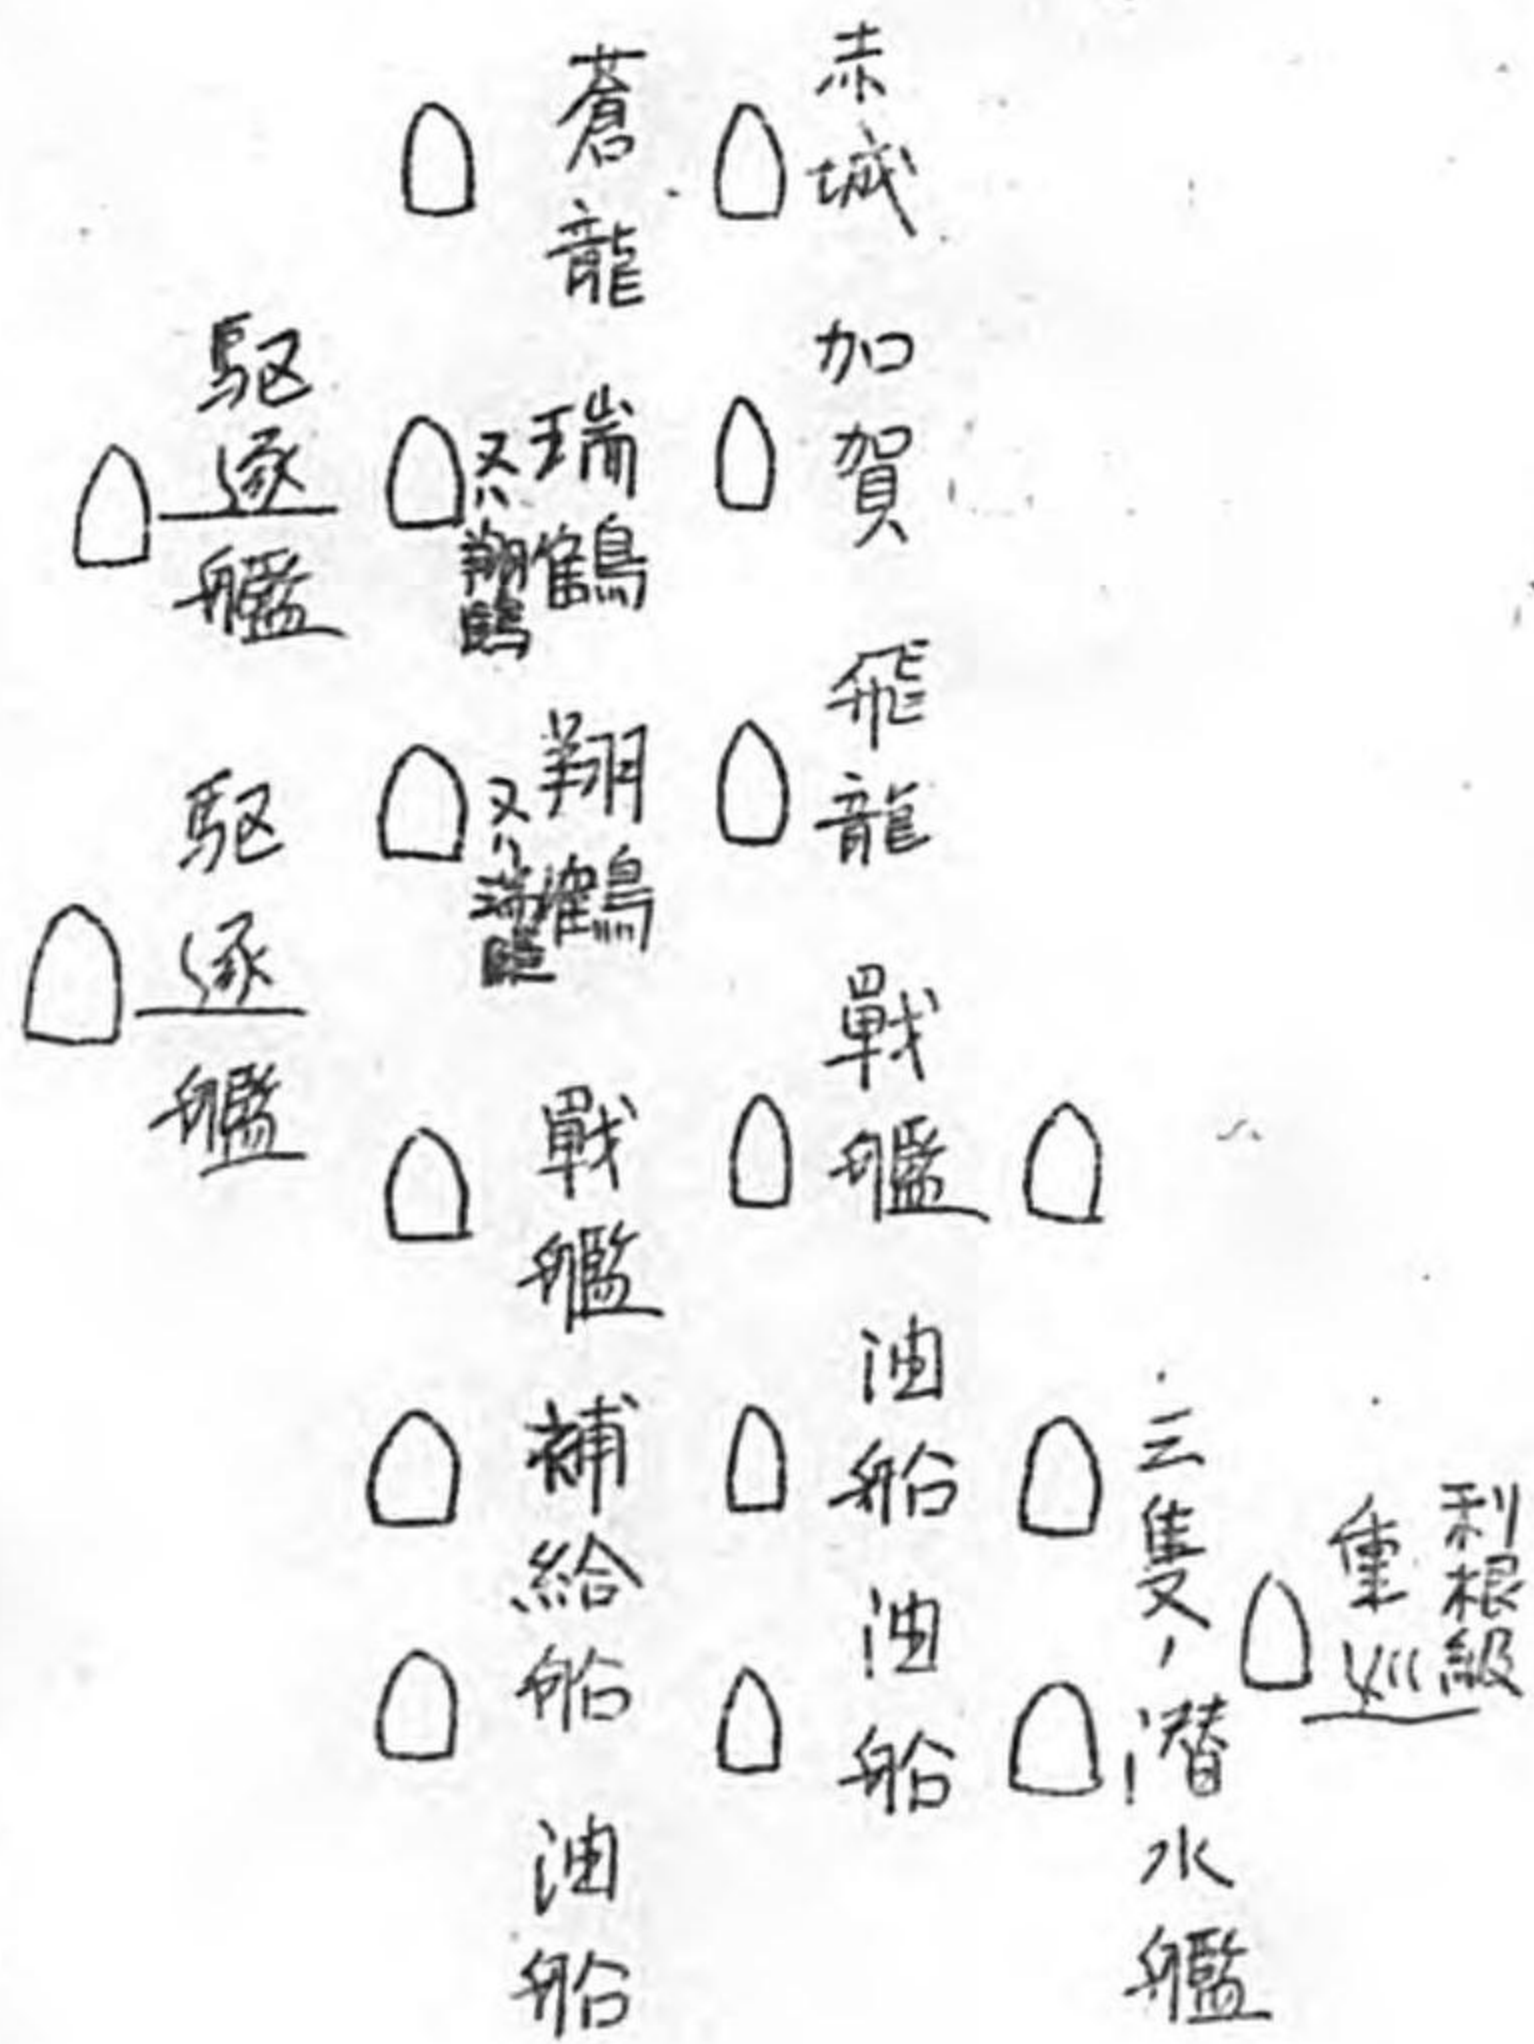 利根級
重巡
三隻ノ潜水艦
赤城
加賀
飛龍
戰艦
油船
油船
蒼龍
瑞鶴
又ハ翔鶴
翔鶴
又ハ瑞鶴
戰艦
補給船
油船
駆逐艦
駆逐艦